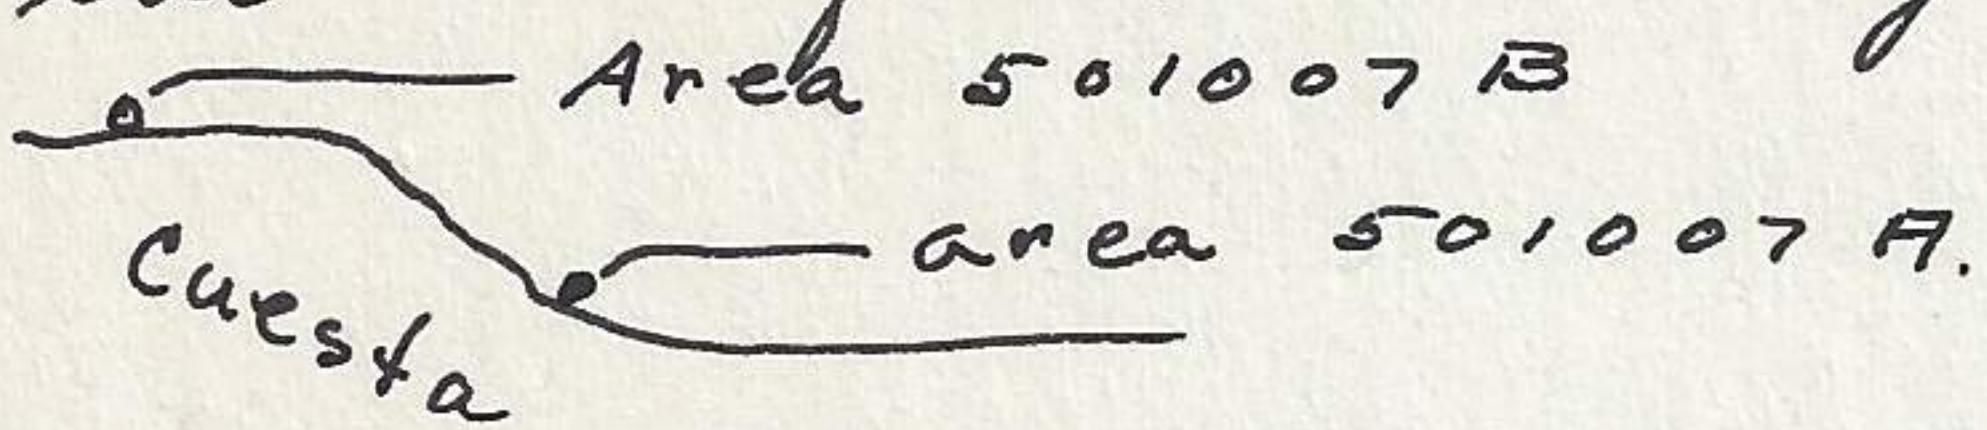 Area 501007 B
area 501007 A.
Cuesta